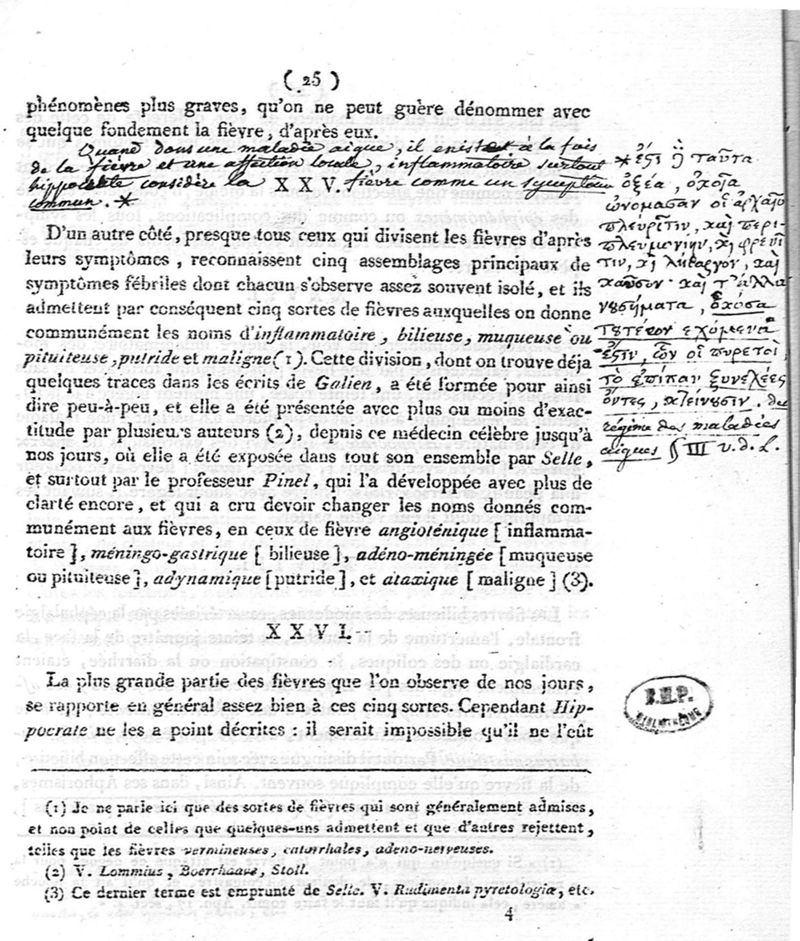 ( 25 )
phénomènes plus graves, qu'on ne peut guère dénommer avec
quelque fondement la fièvre, d'après eux.
Quand dans une maladie aigue, il existe à la fois
de la fièvre et une affection locale, inflammatoire surtout
hippocrate considère la fièvre comme un symptôme
commun. *
X X V.
D'un autre côté, presque tous ceux qui divisent les fièvres d'après
leurs symptômes, reconnaissent cinq assemblages principaux de
symptômes fébriles dont chacun s'observe assez souvent isolé, et ils
admettent par conséquent cinq sortes de fièvres auxquelles on donne
communément les noms d'inflammatoire, bilieuse, muqueuse ou
pituiteuse, putride et maligne (1). Cette division, dont on trouve déja
quelques traces dans les écrits de Galien, a été formée pour ainsi
dire peu-à-peu, et elle a été présentée avec plus ou moins d'exac-
titude par plusieurs auteurs (2), depuis ce médecin célèbre jusqu'à
nos jours, où elle a été exposée dans tout son ensemble par Selle,
et surtout par le professeur Pinel, qui l'a développée avec plus de
clarté encore, et qui a cru devoir changer les noms donnés com-
munément aux fièvres, en ceux de fièvre angioténique [ inflamma-
toire ], méningo-gastrique [ bilieuse ], adéno-méningée [ muqueuse
ou pituiteuse ], adynamique [ putride ], et ataxique [ maligne ] (3).
* ἐςὶ ἢ ταῦτα
ὀξέα, ὁκοῖα
ὠνόμασαν οἱ ἀρχαῖοι
πλευρῖτιν, καὶ περι-
πλευμονίην, κὶ φρενῖ
τιν, κὶ λήθαργον, καὶ
καῦσον· καὶ τ'ἄλλα
νυσήματα, ὁκόσα
τυτέων ἐχόμενα
ἐςιν, ὧν οἱ πυρετοὶ
τὸ ἐπίπαν ξυνεχέες
ὄντες, κτείνυσιν. du
régime des maladies
aigues § III v. d. L.
X X V I.
La plus grande partie des fièvres que l'on observe de nos jours,
se rapporte en général assez bien à ces cinq sortes. Cependant Hip-
pocrate ne les a point décrites : il serait impossible qu'il ne l'eût
B.H.P.
BIBLIOTHÈQUE
(1) Je ne parle ici que des sortes de fièvres qui sont généralement admises,
et non point de celles que quelques-uns admettent et que d'autres rejettent,
telles que les fièvres vermineuses, catarrhales, adeno-nerveuses.
(2) V. Lommius, Boerrhaave, Stoll.
(3) Ce dernier terme est emprunté de Selle. V. Rudimenta pyretologiæ, etc.
4